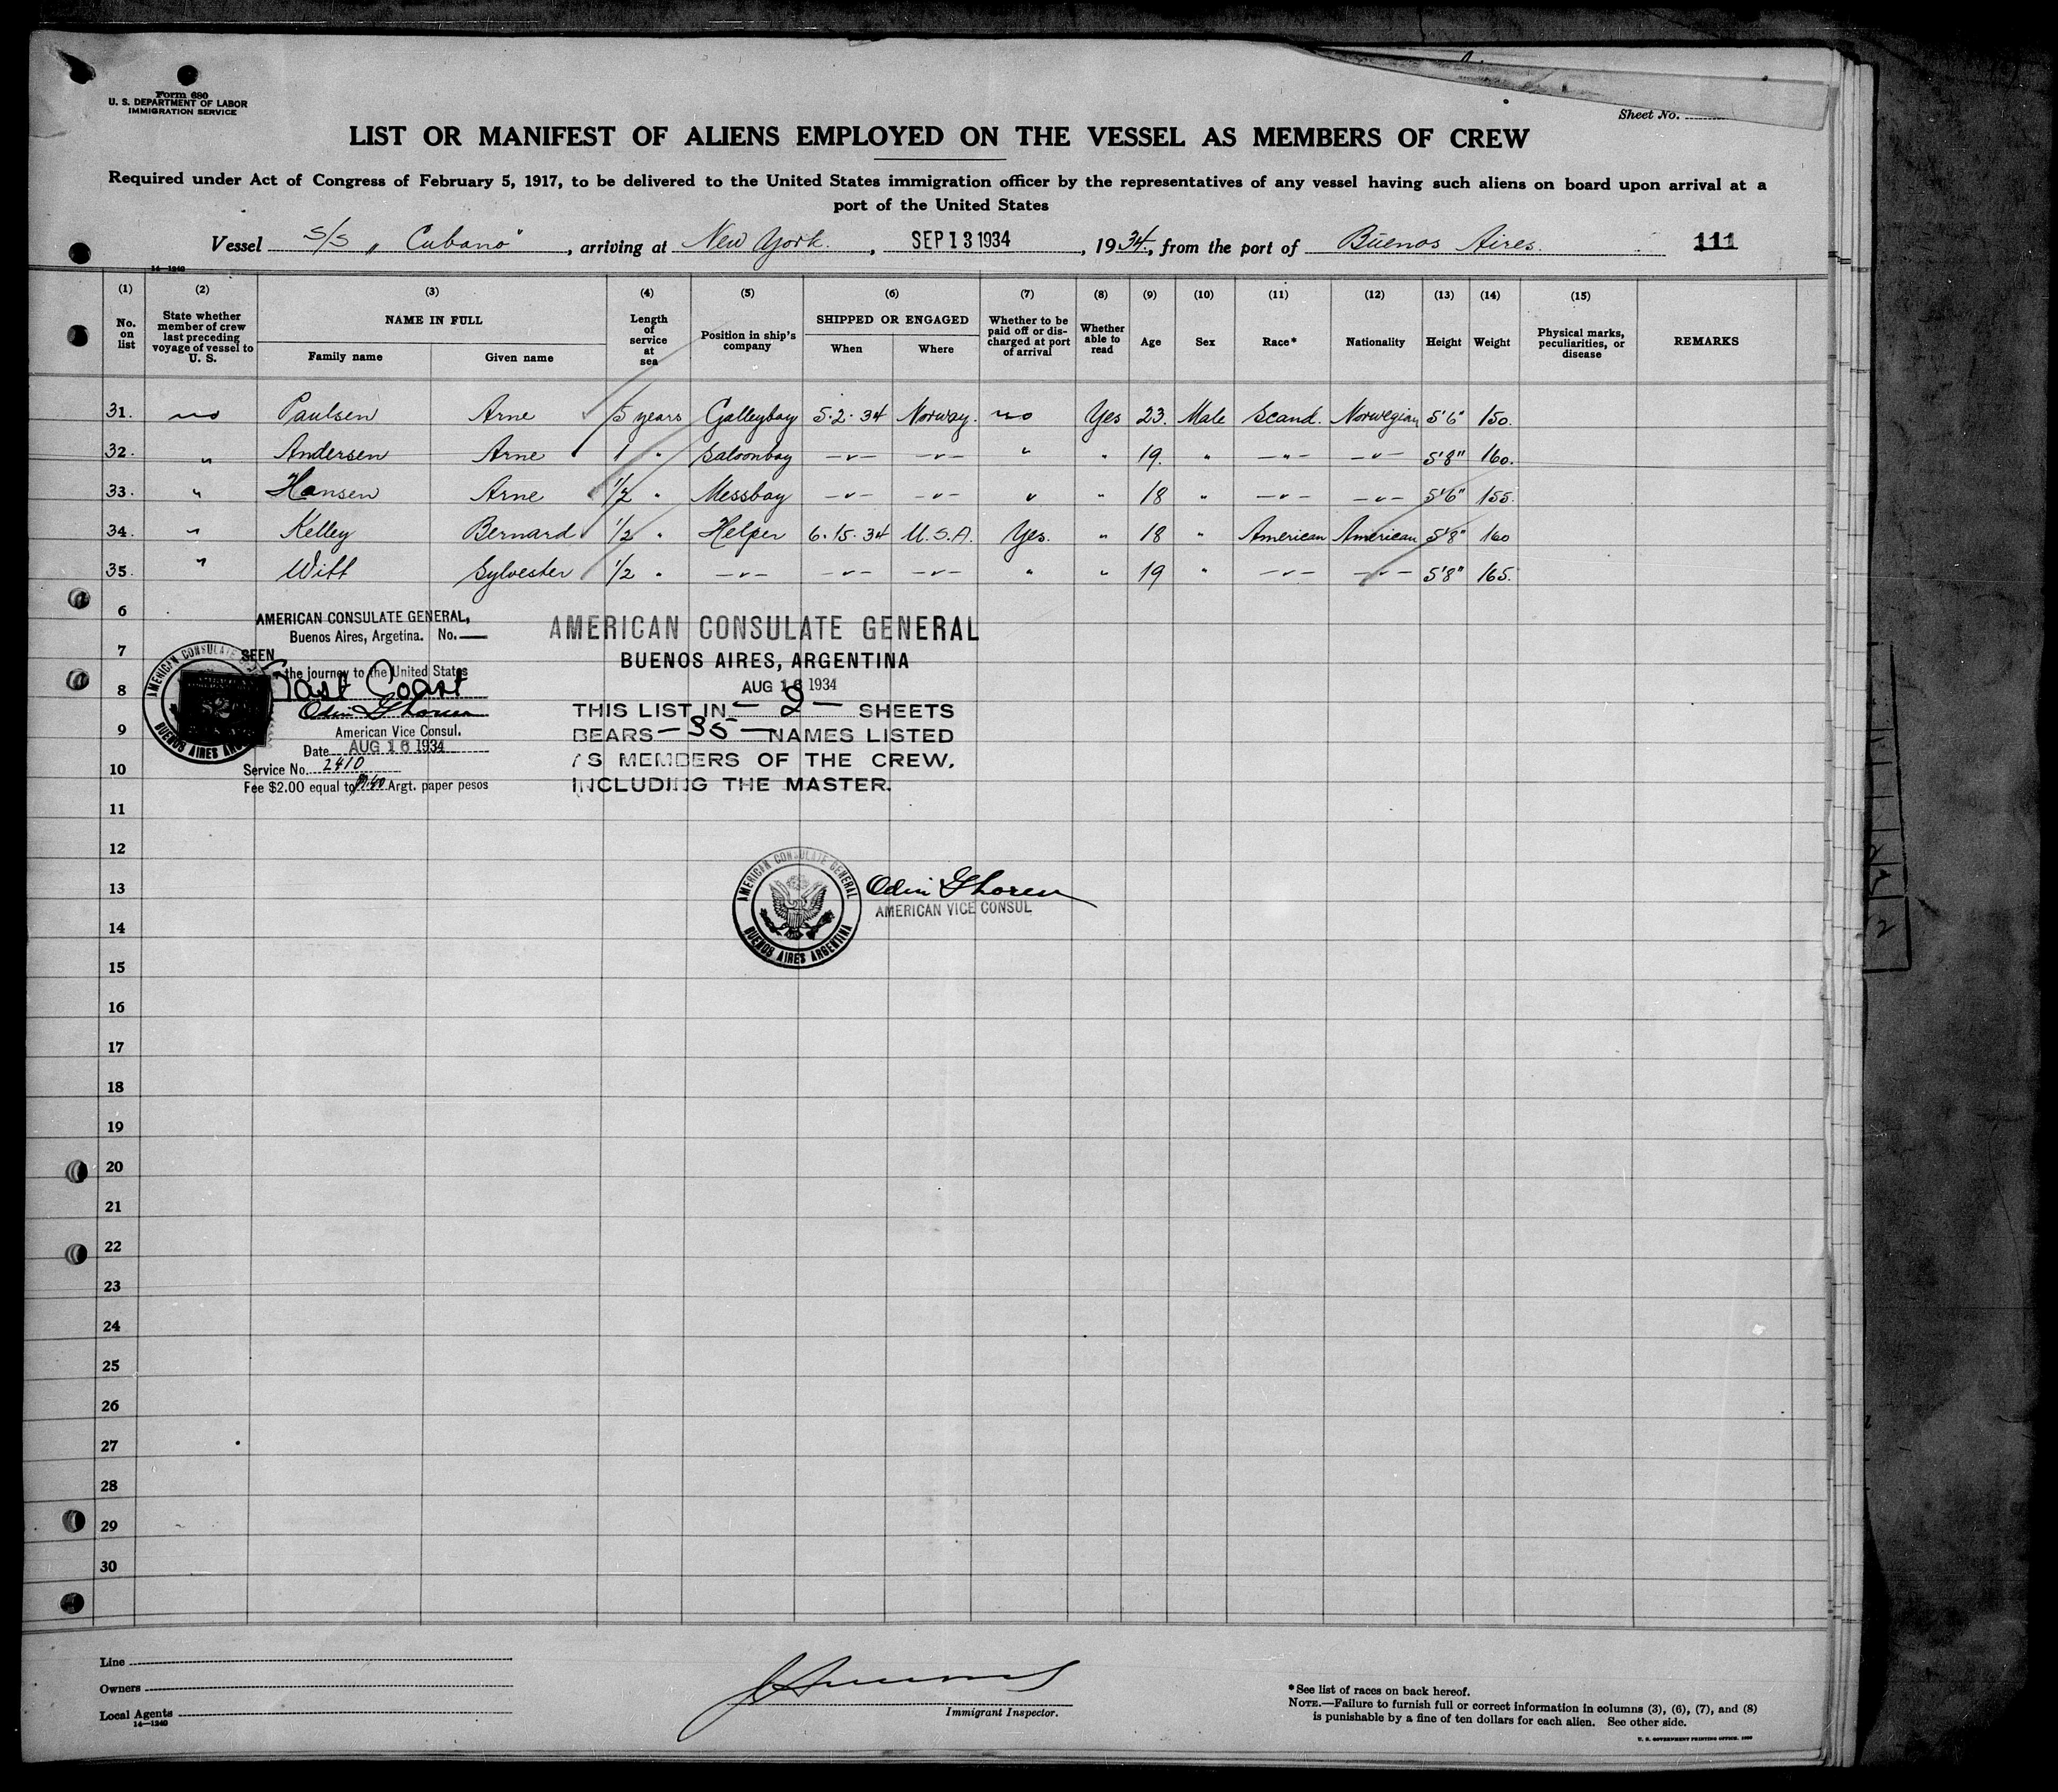 Form 680
U. S. DEPARTMENT OF LABOR
IMMIGRATION SERVICE
Sheet No.
LIST OR MANIFEST OF ALIENS EMPLOYED ON THE VESSEL AS MEMBERS OF CREW
Required under Act of Congress of February 5, 1917, to be delivered to the United States immigration officer by the representatives of any vessel having such aliens on board upon arrival at a
port of the United States
Vessel S/S „ Cubano", arriving at New York, SEP 13 1934, 1934, from the port of Buenos Aires. 111
14—1240
(1) (2) (3) (4) (5) (6) (7) (8) (9) (10) (11) (12) (13) (14) (15)
No. on list State whether member of crew last preceding voyage of vessel to U. S. NAME IN FULL Family name Given name Length of service at sea Position in ship's company SHIPPED OR ENGAGED When Where Whether to be paid off or discharged at port of arrival Whether able to read Age Sex Race* Nationality Height Weight Physical marks, peculiarities, or disease REMARKS
31. no Paulsen Arne 5 years Galleyboy 5-2-34 Norway. no Yes 23. Male Scand. Norwegian 5'6" 150.
32. " Andersen Arne 1 " Saloonboy -"- -"- " " 19. " -"- -"- 5'8" 160.
33. " Hansen Arne 1/2 " Messboy -"- -"- " " 18 " -"- -"- 5'6" 155.
34. " Kelley Bernard 1/2 " Helper 6-15-34 U.S.A. Yes. " 18 " American American 5'8" 160
35. " Witt Sylvester 1/2 " -"- -"- -"- " " 19 " -"- -"- 5'8" 165.
6
7
8
9
10
11
12
13
14
15
16
17
18
19
20
21
22
23
24
25
26
27
28
29
30
AMERICAN CONSULATE GENERAL,
Buenos Aires, Argetina. No.
SEEN
the journey to the United States
East Coast
American Vice Consul.
Date AUG 16 1934
Service No. 2410
Fee $2.00 equal to Argt. paper pesos
AMERICAN CONSULATE GENERAL
BUENOS AIRES, ARGENTINA
AUG 16 1934
THIS LIST IN - 2 - SHEETS
BEARS - 35 - NAMES LISTED
AS MEMBERS OF THE CREW,
INCLUDING THE MASTER.
AMERICAN CONSULATE GENERAL
BUENOS AIRES ARGENTINA
AMERICAN VICE CONSUL
Line
Owners
Local Agents
14—1240
Immigrant Inspector.
*See list of races on back hereof.
NOTE.—Failure to furnish full or correct information in columns (3), (6), (7), and (8)
is punishable by a fine of ten dollars for each alien. See other side.